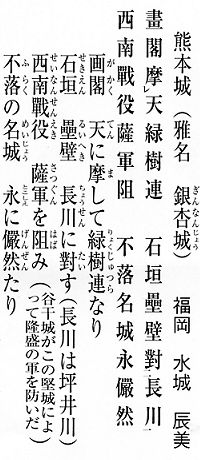 熊本城（雅名　銀杏城）　福岡　水城　辰美
畫閣摩レ天緑樹連　石垣壘壁對二長川一
西南戰役薩軍阻　不落名城永儼然
画閣　天に摩して緑樹連なり
石垣　壘壁　長川に對す（長川は坪井川）
西南戰役　薩軍を阻み（谷干城がこの堅城によって隆盛の軍を防いだ）
不落の名城　永に儼然たり